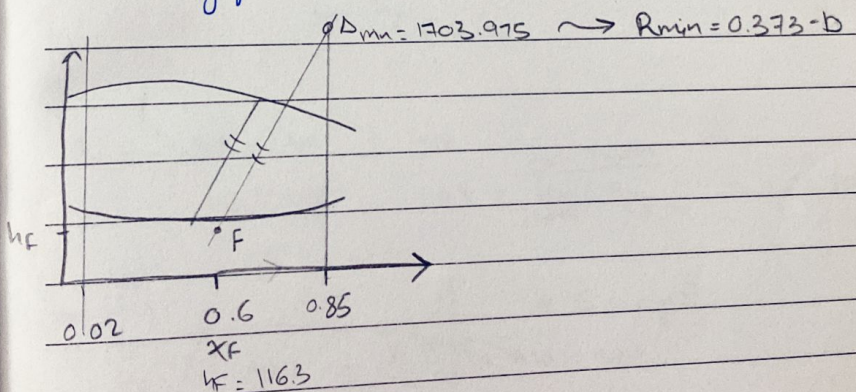 Dmin = 1703.975 → Rmin = 0.373 - b
hF
F
0.02
0.6
0.85
xF
hF = 116.3